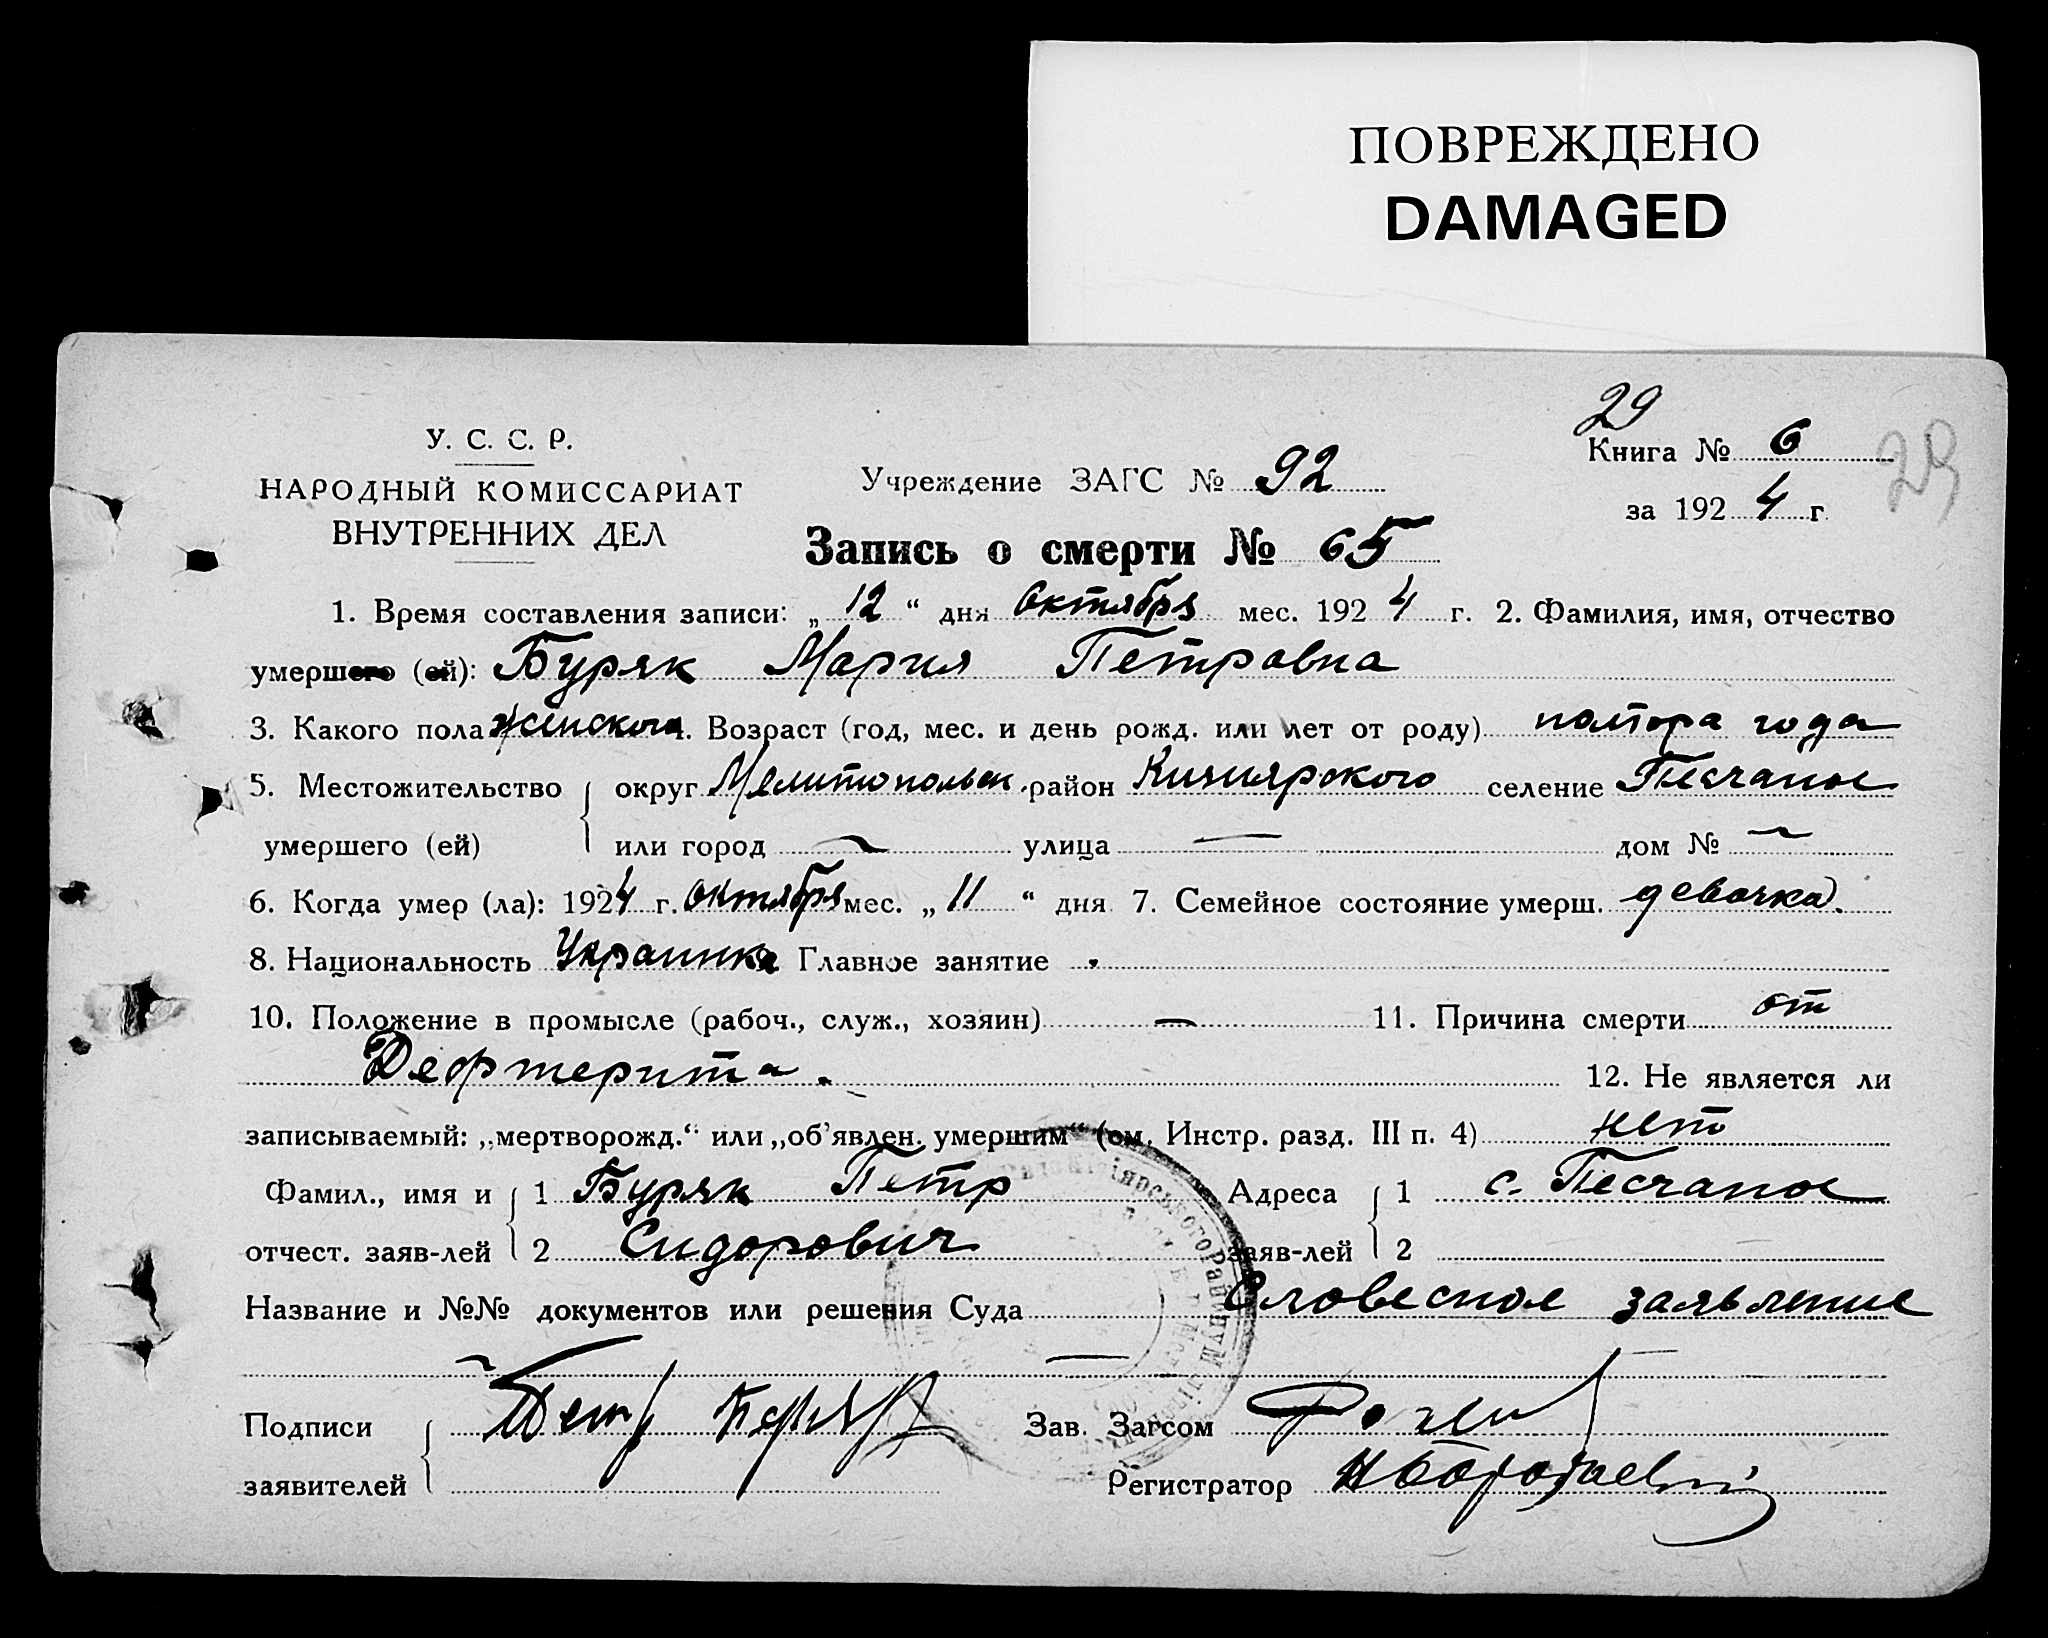 ПОВРЕЖДЕНО
DAMAGED
29
У. С. С. Р.
НАРОДНЫЙ КОМИССАРИАТ
ВНУТРЕННИХ ДЕЛ
Учреждение ЗАГС № 92
Книга № 6
29
за 1924 г.
Запись о смерти № 65
1. Время составления записи: „ 12 “ дня Октября мес. 1924 г. 2. Фамилия, имя, отчество
умершего (ей): Буряк Мария Петровна
3. Какого пола женского 4. Возраст (год, мес. и день рожд. или лет от роду) полтора года
5. Местожительство округ Мелитопольск. район Кизиярского селение Песчаное
умершего (ей) или город — улица — дом № —
6. Когда умер (ла): 1924 г. октября мес. „ 11 “ дня 7. Семейное состояние умерш. девочка.
8. Национальность Украинка Главное занятие
10. Положение в промысле (рабоч., служ., хозяин) — 11. Причина смерти от
Дефтерита. 12. Не является ли
записываемый: „мертворожд.“ или „об'явлен. умершим“ (см. Инстр. разд. III п. 4) нет
Фамил., имя и 1 Буряк Петр Адреса 1 с. Песчаное
отчест. заяв-лей 2 Сидорович заяв-лей 2 —
Название и №№ документов или решения Суда Словесное заявление
Подписи Петр Зав. Загсом
заявителей Регистратор